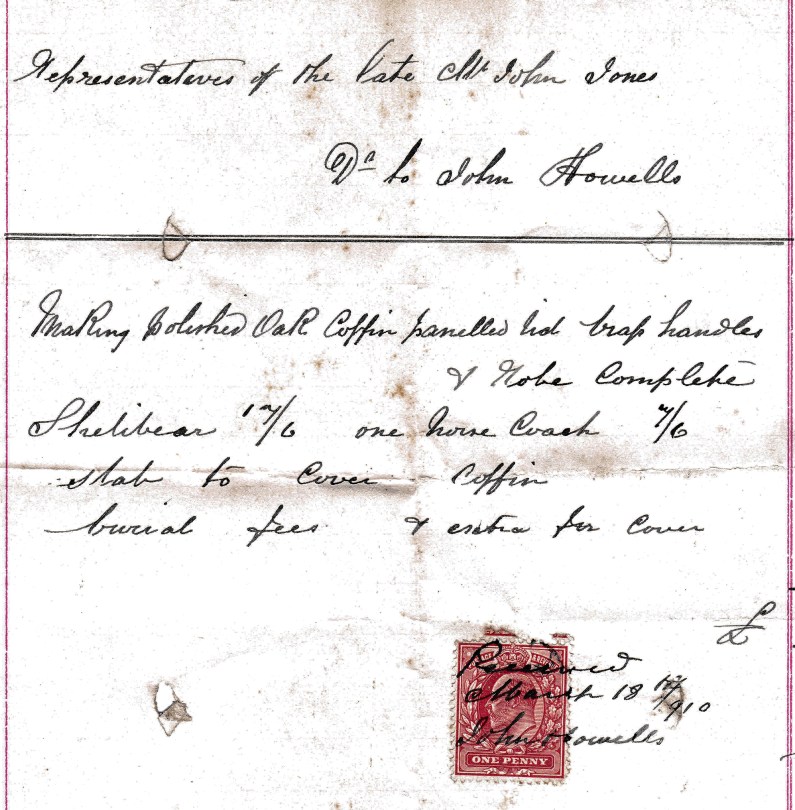 Representatives of the late Mr John Jones
Dr to John Howells
Making polished Oak Coffin panelled lid brass handles
& Robe Complete
Shelibear 17/6 one horse Coach 7/6
slab to Cover Coffin
burial fees & extra for Cover
£
Received
March 18 1910
John Howells
ONE PENNY